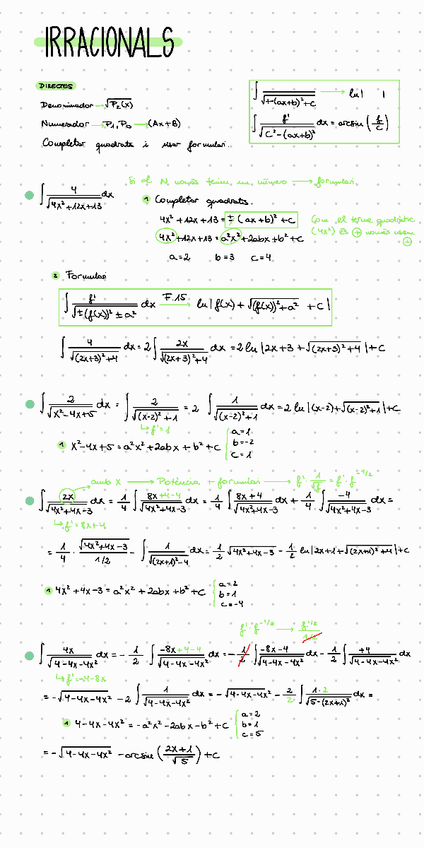 IRRACIONALS
DIRECTES
Denominador → √P₂(x)
Numerador → P₁, P₀ → (Ax+B)
Completar quadrats i usar formules.
∫ 1/√(+−(ax+b)²+C) → ln| |
∫ f'/√(C²−(ax+b)²) dx = arcsin (f/C)
Si al N només tenim un número → formules.
∫ 4/√(4x²+12x+13) dx
1 Completar quadrats.
4x²+12x+13 = ±(ax+b)²+C
4x²+12x+13 = a²x²+2abx+b²+C
a=2 b=3 C=4
Com el terme quadràtic
(4x²) és + només usem
+
2 Formules
∫ f'/√(±(f(x))²±a²) dx F.15 → ln|f(x)+√((f(x))²+a²) +C|
∫ 4/√((2x+3)²+4) dx = 2∫ 2x/√((2x+3)²+4) dx = 2 ln|2x+3+√((2x+3)²+4)|+C
∫ 2/√(x²−4x+5) dx = ∫ 2/√((x−2)²+1) = 2 ∫ 1/√((x−2)²+1) dx = 2 ln|(x−2)+√((x−2)²+1)|+C
↳f'=1
1 x²−4x+5 = a²x²+2abx+b²+C
a=1
b=−2
C=1
amb x → Potència + formules → f' 1/√f = f'·f^(−1/2)
∫ 2x/√(4x²+4x−3) dx = 1/4 ∫ (8x+4−4)/√(4x²+4x−3) dx = 1/4 ∫ (8x+4)/√(4x²+4x−3) dx + 1/4 ∫ −4/√(4x²+4x−3) dx =
↳f'=8x+4
= 1/4 · √(4x²+4x−3)/(1/2) − ∫ 1/√((2x+1)²−4) dx = 1/2 √(4x²+4x−3) − 1/2 ln|2x+1+√((2x+1)²+4)|+C
1 4x²+4x−3 = a²x²+2abx+b²+C
a=2
b=1
C=−4
f'·f^(−1/2) → f^(1/2)/(1/2)
∫ 4x/√(4−4x−4x²) dx = −1/2 · ∫ (−8x+4−4)/√(4−4x−4x²) dx = −1/2 ∫ (−8x−4)/√(4−4x−4x²) dx − 1/2 ∫ +4/√(4−4x−4x²) dx
↳f'=−4−8x
= −√(4−4x−4x²) − 2 ∫ 1/√(4−4x−4x²) dx = −√(4−4x−4x²) − 2/2 ∫ 1·2/√(5−(2x+1)²) dx =
1 4−4x−4x² = −a²x²−2abx−b²+C
a=2
b=1
C=5
= −√(4−4x−4x²) − arcsin ((2x+1)/√5) + C